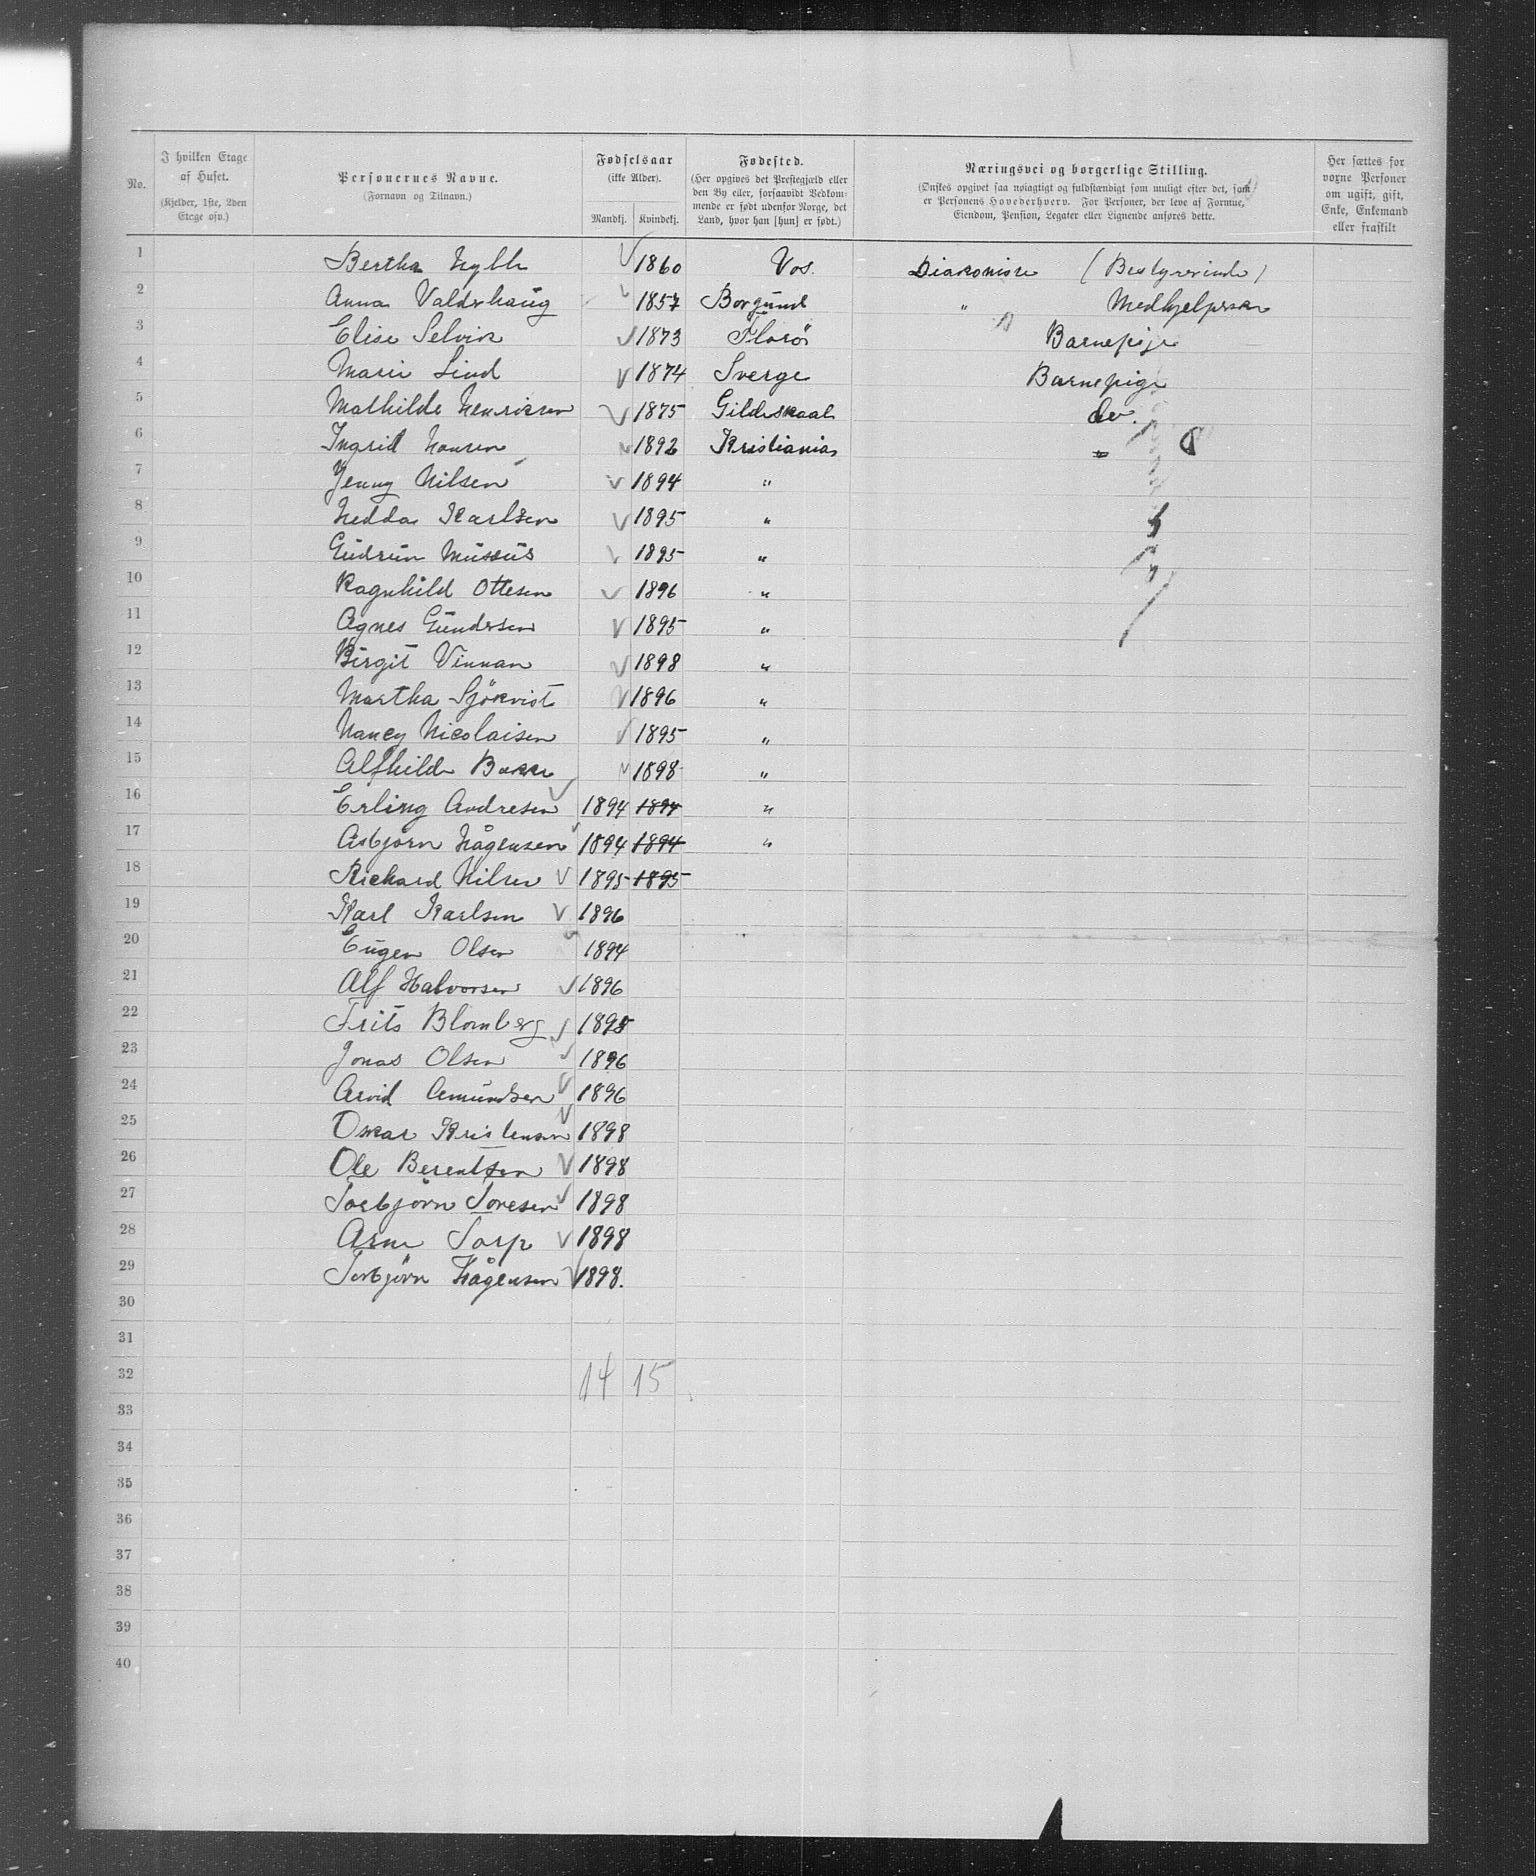 No. | I hvilken Etage af Huset. (Kjelder, 1ste, 2den Etage osv.) | Personernes Navne. (Fornavn og Tilnavn.) | Fødselsaar (ikke Alder). Mandkj. Kvindekj. | Fødested. (Her opgives det Prestegjæld eller den By eller, forsaavidt Vedkommende er født udenfor Norge, det Land, hvor han [hun] er født.) | Næringsvei og borgerlige Stilling. (Ønskes opgivet saa nøiagtigt og fuldstændigt som muligt efter det, som er Personens Hovederhverv. For Personer, der leve af Formue, Eiendom, Pension, Legater eller Lignende anføres dette.) | Her sættes for voxne Personer om ugift, gift, Enke, Enkemand eller fraskilt
1 Bertha 1860 Vos. Diakonisse (Bestyrerinde)
2 Anna Valderhaug 1857 Borgund " Medhjelperske
3 Elise Selvik 1873 Florö Barnepige
4 Marie Lind 1874 Sverge Barnepige
5 Mathilde Henriksen 1875 Gildeskaal do.
6 Ingrid Hansen 1892 Kristiania "
7 Jenny Nilsen 1894 "
8 Hedda Karlsen 1895 "
9 Gudrun Mussus 1895 "
10 Ragnhild Ottesen 1896 "
11 Agnes Gundersen 1895 "
12 Birgit Vinnan 1898 "
13 Martha Sjökvist 1896 "
14 Nancy Nicolaisen 1895 "
15 Alfhilde Bakke 1898 "
16 Erling Andresen 1894 1894 "
17 Asbjörn Hågensen 1894 1894 "
18 Richard Nilsen 1895 1895
19 Karl Karlsen 1896
20 Eugen Olsen 1894
21 Alf Halvorsen 1896
22 Frits Blomberg 1895
23 Jonas Olsen 1896
24 Arvid Amundsen 1896
25 Oskar Kristensen 1898
26 Ole Berentsen 1898
27 Torbjörn Toresen 1898
28 Arne Torp 1898
29 Torbjörn Hågensen 1898.
30
31
32 14 15
33
34
35
36
37
38
39
40